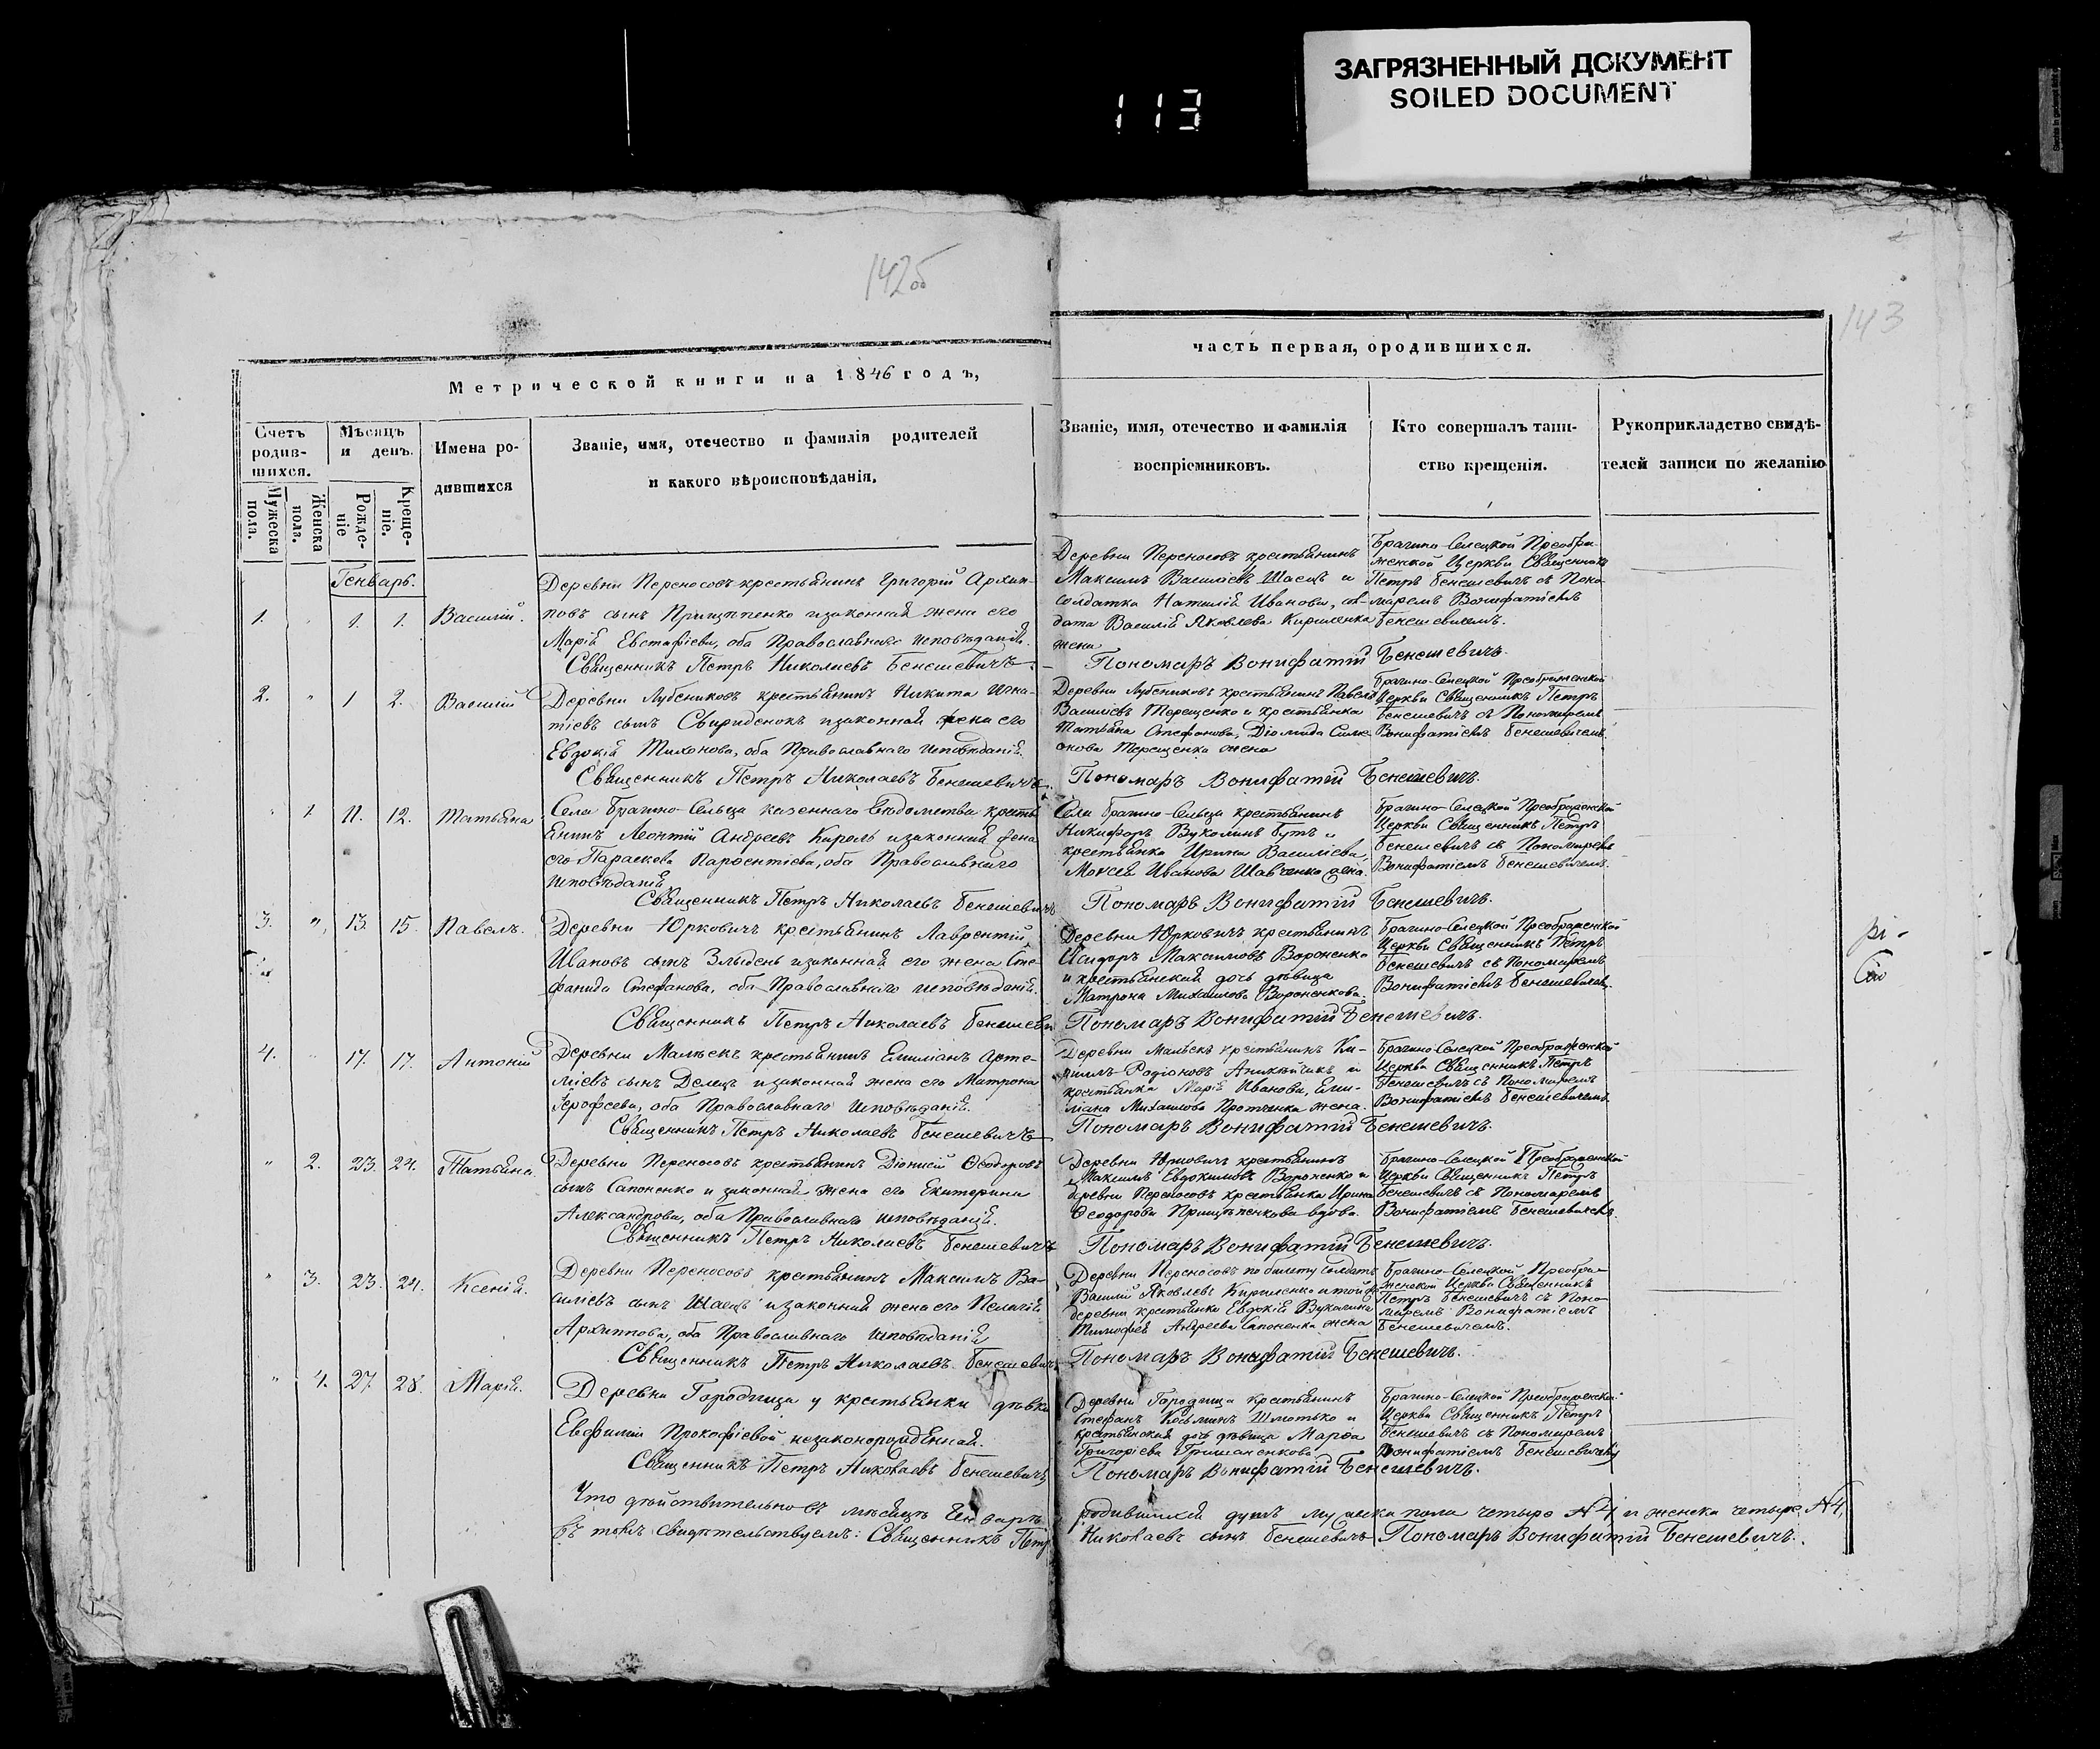 ЗАГРЯЗНЕННЫЙ ДОКУМЕНТ
SOILED DOCUMENT
113
142об
143
Метрической книги на 1846 годъ,
Счетъ родив-шихся.
Мужеска пола.
Женска пола.
Мѣсяцъ и день.
Рожде-ніе
Креще-ніе.
Имена ро-
дившихся
Званіе, имя, отечество и фамилія родителей
и какого вѣроисповѣданія.
часть первая, ородившихся.
Званіе, имя, отечество и фамилія
воспріемниковъ.
Кто совершалъ таин-
ство крещенія.
Рукоприкладство свидѣ-
телей записи по желанію
Генварь.
1. " 1. 1. Василій.
Деревни Переносовъ крестьянинъ Григорій Архип-
повъ сынъ Прищппенко изаконная жена его
Марія Евстафіева, оба Православнаго исповѣданія.
Священникъ Петръ Николаевъ Бенешевичъ
Деревни Переносовъ крестьянинъ
Максимъ Василіевъ Шаецъ и
солдатка Наталія Иванова, сол-
дата Василія Яковлева Кириленка
жена
Брагино-Селецкой Преобра-
женской Церкви Священникъ
Петръ Бенешевичъ съ Поно-
маремъ Вонифатіемъ
Бенешевичемъ.
Пономаръ Вонифатій Бенешевичъ.
2. " 1 2. Василій
Деревни Лубениковъ крестьянинъ Никита Игна-
тіевъ сынъ Свириденокъ изаконная жена его
Евдокія Тихонова, оба Православнаго исповѣданія.
Священникъ Петръ Николаевъ Бенешевичъ.
Деревни Лубениковъ крестьянинъ Павелъ
Василіевъ Терещенко и крестьянка
Татьяна Стефанова, Діомида Симе-
онова Терещенка жена
Брагино-Селецкой Преображенской
Церкви Священникъ Петръ
Бенешевичъ съ Пономаремъ
Вонифатіемъ Бенешевичемъ.
Пономаръ Вонифатій Бенешевичъ.
" 1 11. 12. Татьяна
Села Брагино-Сельца казеннаго вѣдомства кресть-
янинъ Леонтій Андреевъ Кароль изаконная жена
его Параскева Парѳентіева, оба Православнаго
исповѣданія
Священникъ Петръ Николаевъ Бенешевичъ
Села Брагино-Сельца крестьянинъ
Никифоръ Вуколинъ Бутъ и
крестьянка Ирина Василіева,
Моисея Иванова Шавченка жена.
Брагино-Селецкой Преображенской
Церкви Священникъ Петръ
Бенешевичъ съ Пономаремъ
Вонифатіемъ Бенешевичемъ.
Пономаръ Вонифатій Бенешевичъ.
3. " 13. 15. Павелъ.
Деревни Юрковичъ крестьянинъ Лаврентій
Ивановъ сынъ Злыдень изаконная его жена Сте-
фанида Стефанова, оба Православнаго исповѣданія.
Священникъ Петръ Николаевъ Бенешеви
Деревни Юрковичъ крестьянинъ
Исидоръ Максимовъ Вороненко
и крестьянская дочь дѣвица
Матрона Михаилова Вороненкова.
Брагино-Селецкой Преображенской
Церкви Священникъ Петръ
Бенешевичъ съ Пономаремъ
Вонифатіемъ Бенешевичемъ.
Пономаръ Вонифатій Бенешевичъ.
4. " 17. 17. Антоній
Деревни Малѣекъ крестьянинъ Емиліанъ Арте-
міевъ сынъ Делецъ изаконная жена его Матрона
Іерофеева, оба Православнаго исповѣданія.
Священникъ Петръ Николаевъ Бенешевичъ
Деревни Малѣекъ крестьянинъ
Родіоновъ и
крестьянка Марія Иванова, Еми-
ліана Михаилова Протченка жена.
Брагино-Селецкой Преображенской
Церкви Священникъ Петръ
Бенешевичъ съ Пономаремъ
Вонифатіемъ Бенешевичемъ
Пономаръ Вонифатій Бенешевичъ.
" 2. 23. 24. Татьяна.
Деревни Переносовъ крестьянинъ Діонисій Ѳеодоровъ
сынъ Сапоненко и законная жена его Екатерина
Александрова, оба Православнаго исповѣданія.
Священникъ Петръ Николаевъ Бенешевичъ
Деревни Юрковичъ крестьянинъ
Максимъ Евдокимовъ Вороненко и
деревни Переносовъ крестьянка Ирина
Ѳеодорова Прищепенкова вдова.
Брагино-Селецкой Преображенской
Церкви Священникъ Петръ
Бенешевичъ съ Пономаремъ
Вонифатіемъ Бенешевичемъ.
Пономаръ Вонифатій Бенешевичъ.
" 3. 23. 24. Ксенія.
Деревни Переносовъ крестьянинъ Максимъ Ва-
силіевъ сынъ Шаецъ изаконная жена его Пелагія
Архиппова, оба Православнаго исповѣданія
Священникъ Петръ Николаевъ Бенешевичъ
Деревни Переносовъ по билету солдатъ
Василій Яковлевъ Кириленко итойже
деревни крестьянка Евдокія Вуколина
Тимофея Андреева Сапоненка жена
Брагино-Селецкой Преобра-
женской Церкви Священникъ
Петръ Бенешевичъ съ Поно-
маремъ Вонифатіемъ
Бенешевичемъ.
Пономаръ Вонифатій Бенешевичъ.
" 4. 27. 28. Марія.
Деревни Городища у крестьянки дѣвки
Евфиміи Прокофіевой незаконорожденная.
Священникъ Петръ Николаевъ Бенешевичъ
Деревни Городища крестьянинъ
Стефанъ Козьминъ Шмотько и
крестьянская дочь дѣвица Марѳа
Григоріева Гришаненкова
Брагино-Селецкой Преображенской
Церкви Священникъ Петръ
Бенешевичъ съ Пономаремъ
Вонифатіемъ Бенешевичемъ
Пономаръ Вонифатій Бенешевичъ.
Что дѣйствительно въ мѣсяцѣ Генварѣ родившихся душъ мужеска пола четыре №4 и женска четыре №4,
въ томъ свидѣтельствуемъ: Священникъ Петръ Николаевъ сынъ Бенешевичъ Пономаръ Вонифатій Бенешевичъ.